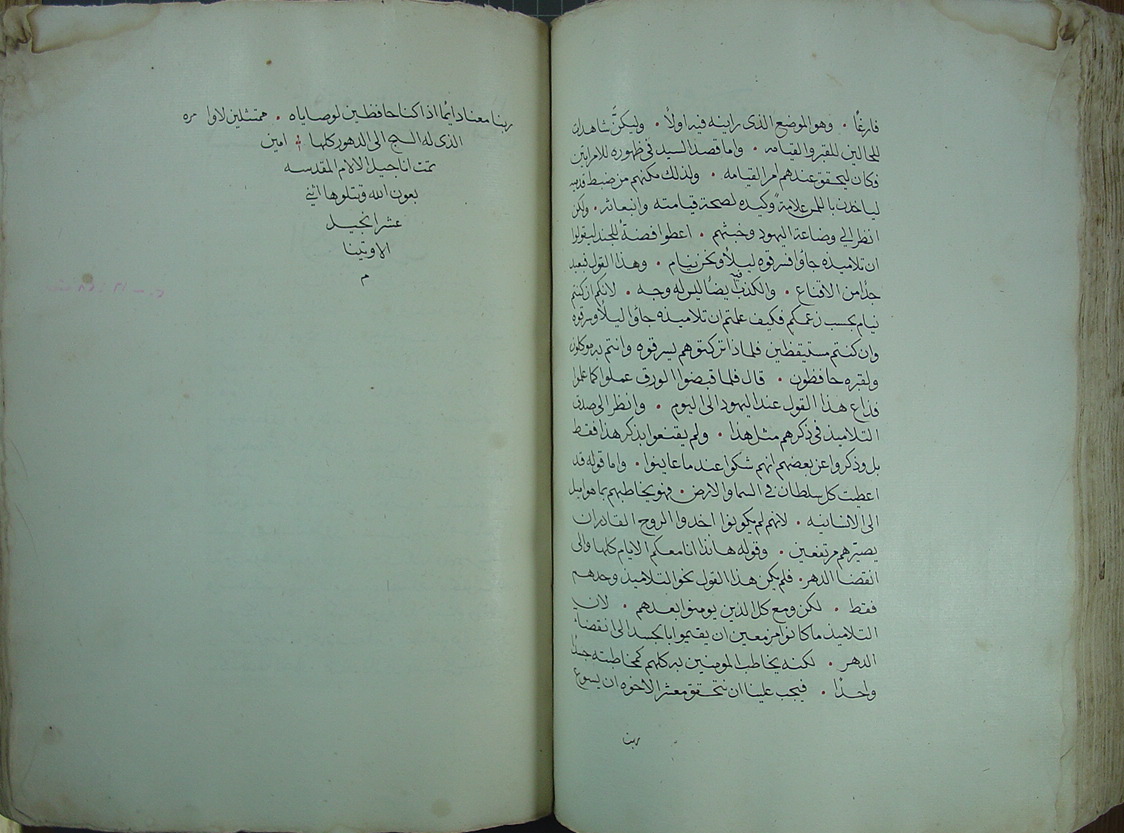 فارغًا . وهو الموضع الذى راينه فيه اولاً . وليكنّ شاهدان
للحالين للقبر والقيامه . واما قصد السيد فى ظهوره للامراتين
فكان ليحقق عندهم امر القيامه . ولذلك مكنهم من ضبط قدميه
لياخدن باللمس علامةً وكيده لصحة قيامته وانبعاثه . ولكن
انظر الي وضاعة اليهود وخبثهم . اعطوا فضةً للجند ليقولوا
ان تلاميذه جاؤا فسرقوه ليلاً ونحن نيام . وهذا القول فبعيد
جدًا من الاقناع . والكذب فيه ايضًا ليس له وجه . لانكم ان كنتم
نيام بحسب زعمكم فكيف علمتم ان تلاميذه جاؤا ليلاً وسرقوه
وان كنتم مستيقظين فلماذا تركتوهم يسرقوه وانتم به موكلون
ولقبره حافظون . قال فلما قبضوا الورق عملوا كما علموا
فذاع هذا القول عند اليهود الى اليوم . وانظر الى صدق
التلاميذ فى ذكرهم مثل هذا . ولم يقنعوا بذكر هذا فقط
بل وذكروا عن بعضهم انهم شكوا عند ما عاينوا . واما قوله قد
اعطيت كل سلطان فى السما والارض . فهو يخاطبهم بما هو مايل
الى الانسانيه . لانهم لم يكونوا اخدوا الروح القادر ان
يصيّرهم مرتفعين . وقوله هانذا انا معكم الايام كلها والى
انقضا الدهر . فلم يكن هذا القول نحو التلاميذ وحدهم
فقط . لكن ومع كل الذين يومنوا بعدهم . لان
التلاميذ ما كانوا مزمعين ان يقيموا بالجسد الى انقضاء
الدهر . لكنه يخاطب المومنين به كلهم كمخاطبته جسدًا
واحدًا . فيجب علينا ان نتحقق معشر الاخوه ان يسوع
ربنا
ربنا معنا دايمًا اذا كنا حافظين لوصاياه . ممتثلين لاوامره
الذى له السبح الى الدهور كلها امين
تمت اناجيل الالام المقدسه
بعون الله ويتلوها اثنى
عشر انجيل
الاوتينا
م